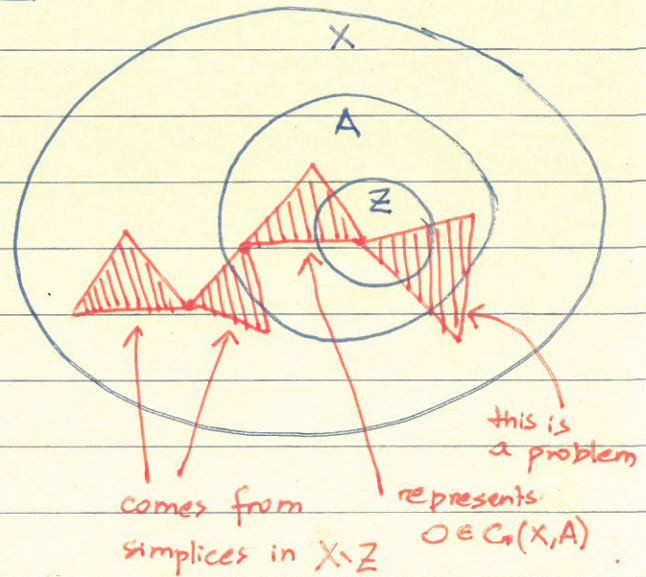 X
A
Z
this is
a problem
comes from
simplices in X∖Z
represents
0 ∈ C_*(X,A)